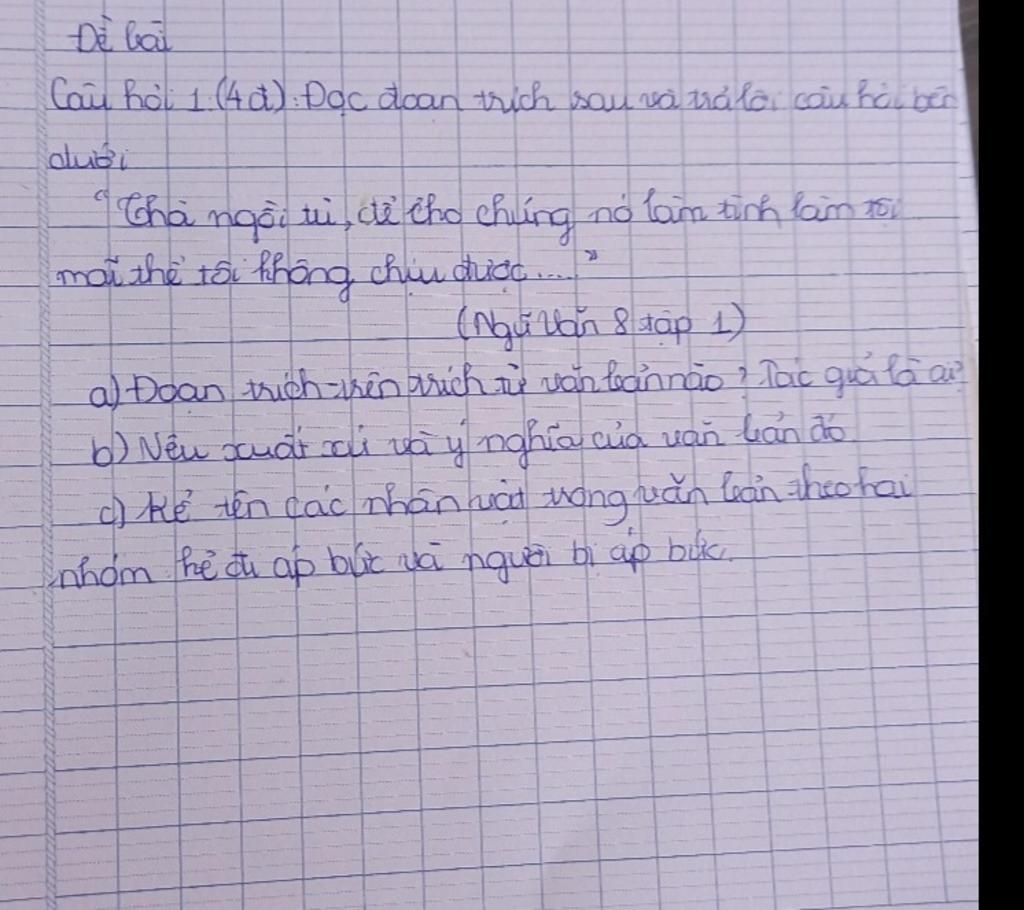 Đề bài
Câu hỏi 1.(4đ): Đọc đoạn trích sau và trả lời câu hỏi bên
dưới
"Thà ngồi tù, để cho chúng nó làm tình làm tội
mãi thế tôi không chịu được...."
(Ngữ văn 8 tập 1)
a) Đoạn trích trên trích từ văn bản nào? Tác giả là ai?
b) Nêu xuất xứ và ý nghĩa của văn bản đó
c) Kể tên các nhân vật trong văn bản theo hai
nhóm kẻ đi áp bức và người bị áp bức.